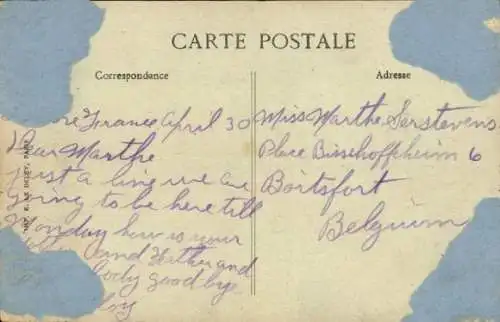 CARTE POSTALE
Correspondance
Adresse
France April 30
Dear Marthe
Just a line we are
going to be here till
Monday how is your
and Father and
body good bye
Miss Marthe Serstevens
Place Bisschoffsheim 6
Boitsfort
Belgium